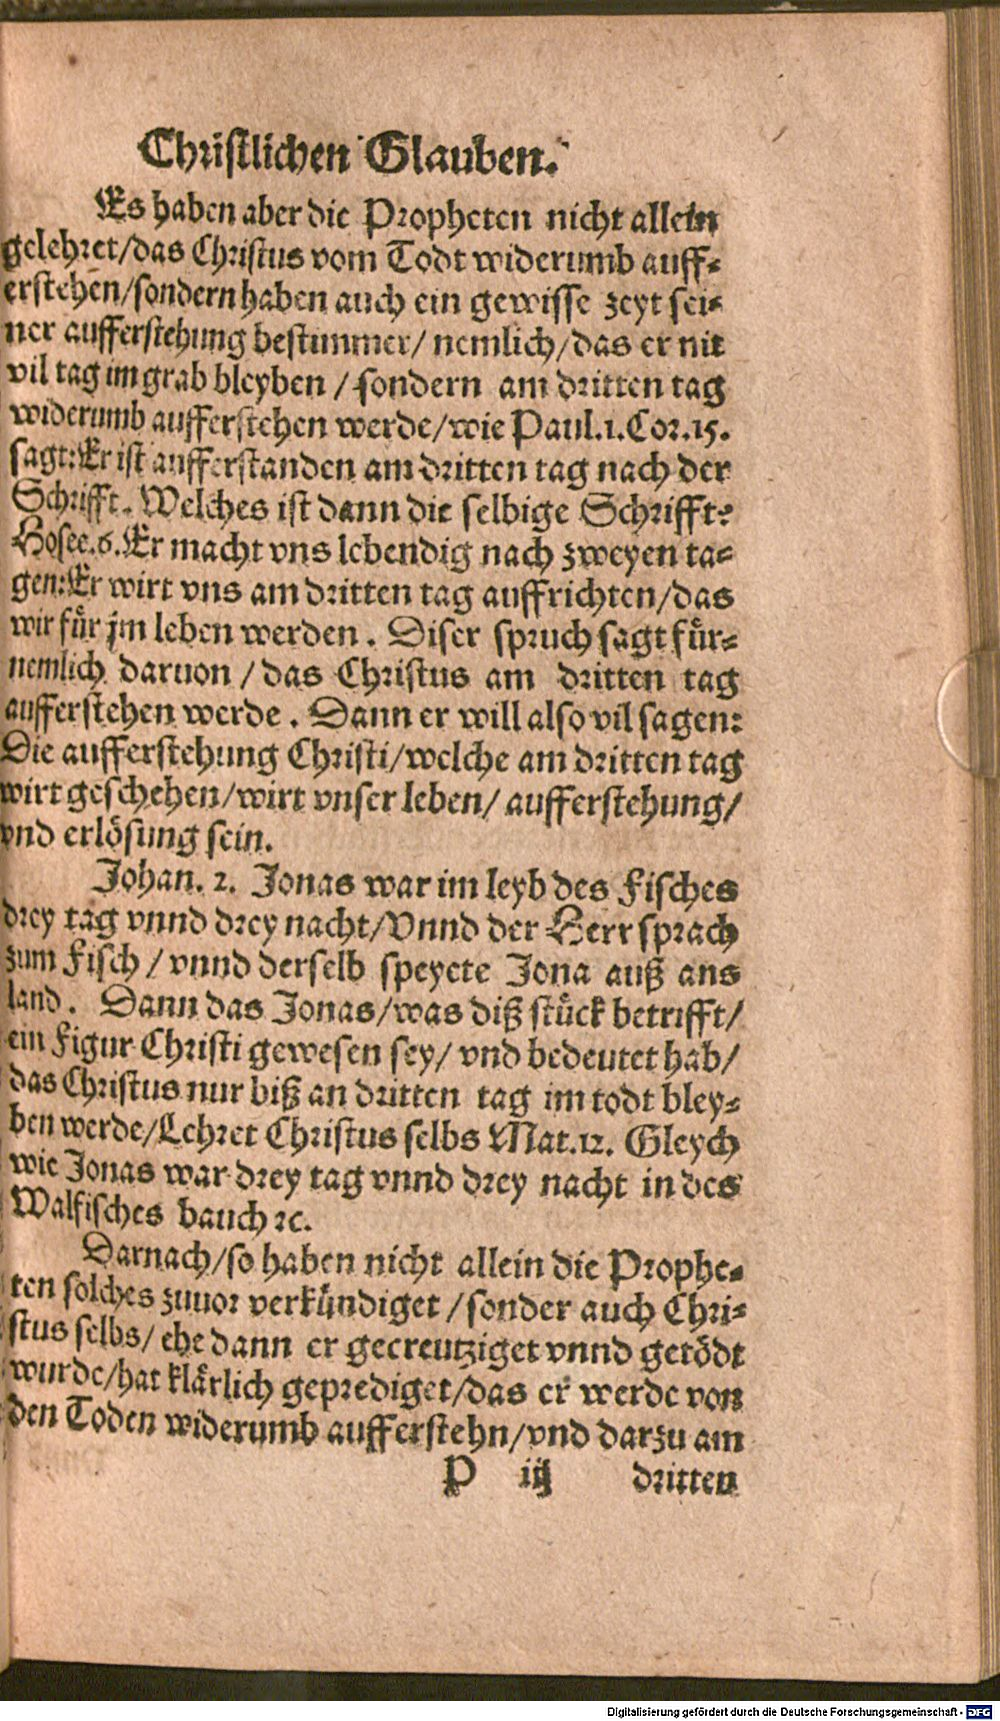 Christlichen Glauben.
Es haben aber die Propheten nicht allein
gelehret/das Christus vom Todt widerumb auff-
erstehen/sondern haben auch ein gewisse zeyt sei-
ner aufferstehung bestimmet/ nemlich/das er nit
vil tag im grab bleyben /sondern am dritten tag
widerumb aufferstehen werde/wie Paul.1.Cor.15.
sagt:Er ist aufferstanden am dritten tag nach der
Schrifft. Welches ist dann die selbige Schrifft?
Hosee.6.Er macht vns lebendig nach zweyen ta-
gen:Er wirt vns am dritten tag auffrichten/das
wir fuͤr jm leben werden. Diser spruch sagt fuͤr-
nemlich daruon /das Christus am dritten tag
aufferstehen werde. Dann er will also vil sagen:
Die aufferstehung Christi/welche am dritten tag
wirt geschehen/wirt vnser leben/ aufferstehung/
vnd erloͤsung sein.
Johan. 2. Jonas war im leyb des Fisches
drey tag vnnd drey nacht/Vnnd der Herr sprach
zum Fisch / vnnd derselb speyete Jona auß ans
land. Dann das Jonas/was diß stuͤck betrifft/
ein Figur Christi gewesen sey/ vnd bedeutet hab/
das Christus nur biß an dritten tag im todt bley-
ben werde/Lehret Christus selbs Mat.12. Gleych
wie Jonas war drey tag vnnd drey nacht in des
Walfisches bauch ꝛc.
Darnach/so haben nicht allein die Prophe-
ten solches zuuor verkuͤndiget /sonder auch Chri-
stus selbs/ ehe dann er gecreutziget vnnd getoͤdt
wurde/hat klaͤrlich geprediget/das er werde von
den Toden widerumb aufferstehn/vnd darzu am
P iij dritten
Digitalisierung gefördert durch die Deutsche Forschungsgemeinschaft - DFG